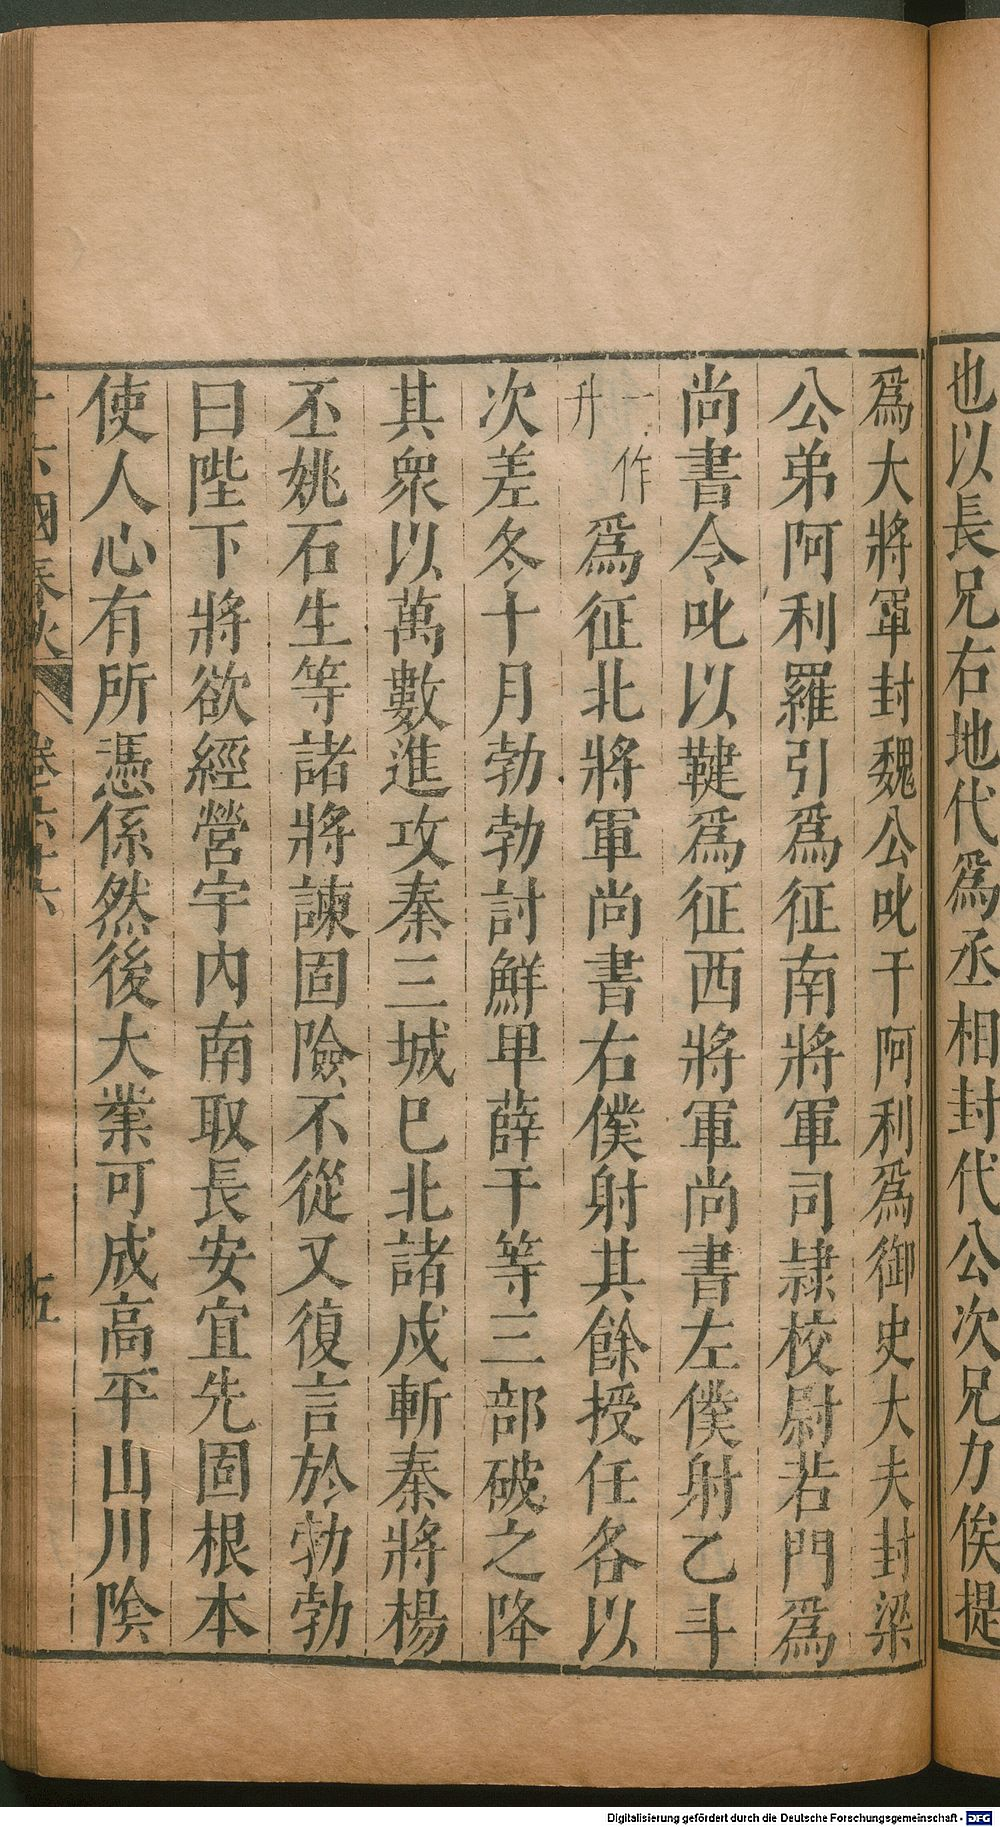 也以長兄右地代爲丞相封代公次兄力俟提
爲大將軍封魏公叱干阿利爲御史大夫封梁
公弟阿利羅引爲征南將軍司隷校尉若門爲
尚書令叱以鞬爲征西將軍尚書左僕射乙斗
一作升爲征北將軍尚書右僕射其餘授任各以
次差冬十月勃勃討鮮甲薛干等三部破之降
其衆以萬數進攻秦三城巳北諸戍斬秦將楊
丕姚石生等諸將諫固險不從又復言於勃勃
曰陛下將欲經營宇內南取長安宜先固根本
使人心有所憑係然後大業可成高平山川險
十六國春秋 卷六十六 五
Digitalisierung gefördert durch die Deutsche Forschungsgemeinschaft - DFG